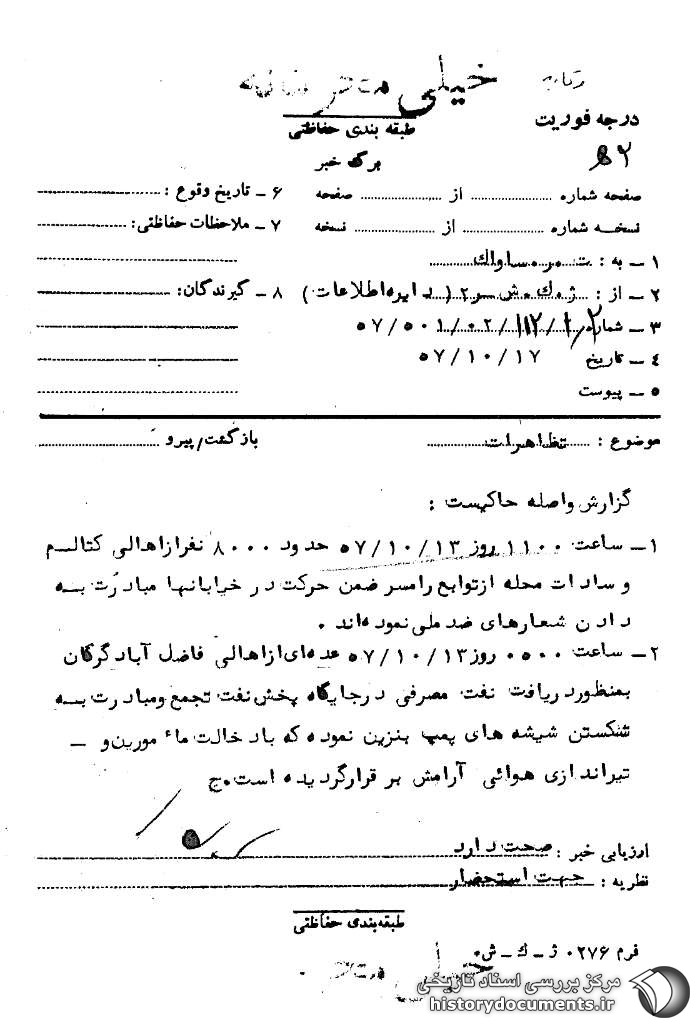 خیلی محرمانه
درجه فوریت
طبقه بندی حفاظتی
برگ خبر
صفحه شماره از صفحه
۶ – تاریخ وقوع :
نسخه شماره از نسخه
۷ – ملاحظات حفاظتی:
۱ – به : ت م ر ساواک
۲ – از : ژ ۰ ک ۰ ش س ر ۲ ( دایره اطلاعات )
۸ – گیرندگان:
۳ – شماره ۵۷/۵۰۱/۰۲/۱۱۲/
۴ – تاریخ ۵۷/۱۰/۱۷
۵ – پیوست
موضوع : تظاهرات
بازگشت/پیرو
گزارش واصله حاکیست :
۱– ساعت ۱۱۰۰ روز ۵۷/۱۰/۱۳ حدود ۸۰۰۰ نفرازاهالی کتالم
و سادات محله ازتوابع رامسر ضمن حرکت در خیابانها مبادرت به
دادن شعارهای ضد ملی نموده‌اند ۰
۲– ساعت ۰۵۰۰ روز ۵۷/۱۰/۱۳ عده‌ای ازاهالی فاضل آباد گرگان
بمنظور دریافت نفت مصرفی درجایگاه پخش نفت تجمع ومبادرت به
شکستن شیشه های پمپ بنزین نموده که بادخالت مأمورین و –
تیراندازی هوائی آرامش بر قرارگردیده است.ج
ارزیابی خبر : صحت دارد
نظریه : جهت استحضار
طبقه‌بندی حفاظتی
فرم ۰۲۷۶ ژ – ک – ش
خیلی محر
مرکز بررسی اسناد تاریخی
historydocuments.ir